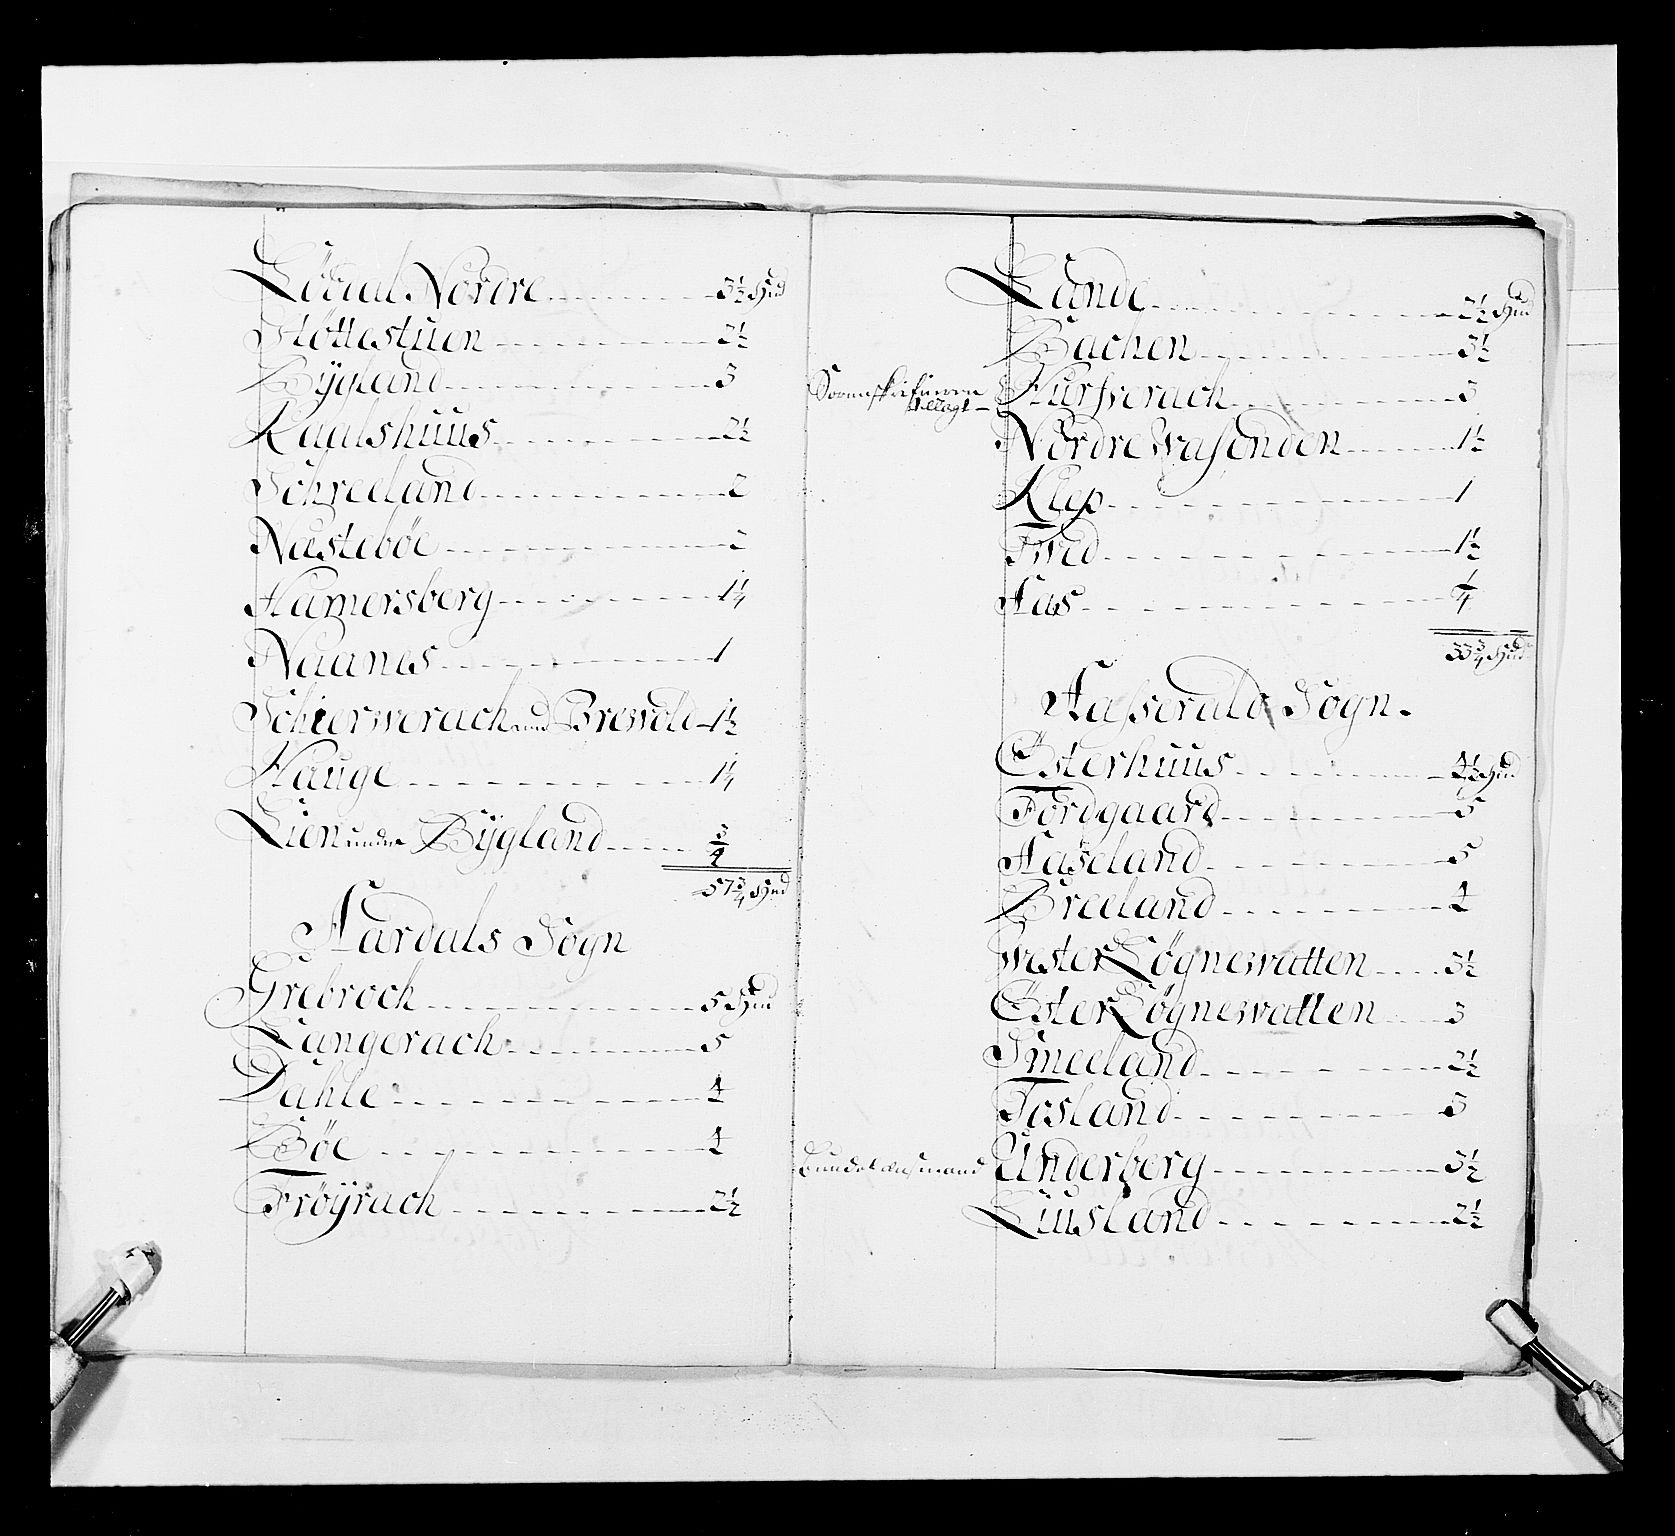 Lödial Nordre 3½ Hud
Støttestuen 2½
Bÿgland 3
Kaalshuus 2½
Schreeland 2
Næstebøe 2
Hamersberg 1¼
Naanes 1
Schierwerach und Brewold 1½
Hauge 1¼
Lien under Bÿgland ¾
57¾ Hud
Aardals Sogn
Grebroch 5 Hud
Langerach 5
Dahle 4
Bøe 4
Frøÿrach 2½
Lunde 2½ Hud
Bachen 3½
Sorenskrifueren tillagt Hurfverach 3
Nordre Wasenden 1½
Klep 1
Twed 1½
Aas ¼
33¾ Hud
Aasserals Sogn.
Österhuus 4½ Hud
Fordgaard 5
Aaseland 5
Breeland 4
Wester Løgnewatten 3½
Öster Løgnewatten 3
Smeeland 2½
Fosland 3
Bundelensmand Underberg 3½
Liusland 2½